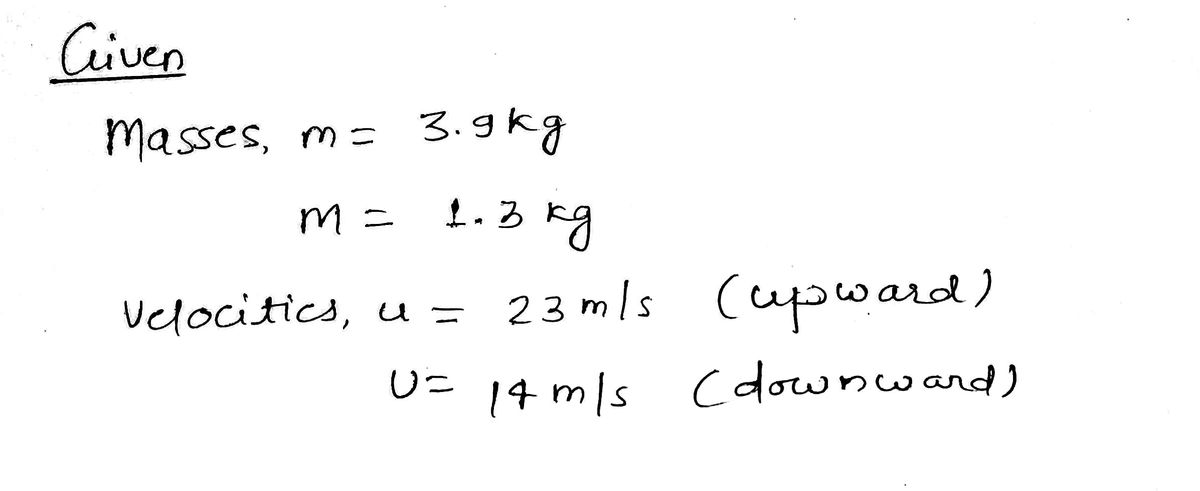 Given
Masses, m = 3.9 kg
m = 1.3 kg
Velocities, u = 23 m/s (upward)
U = 14 m/s (downward)